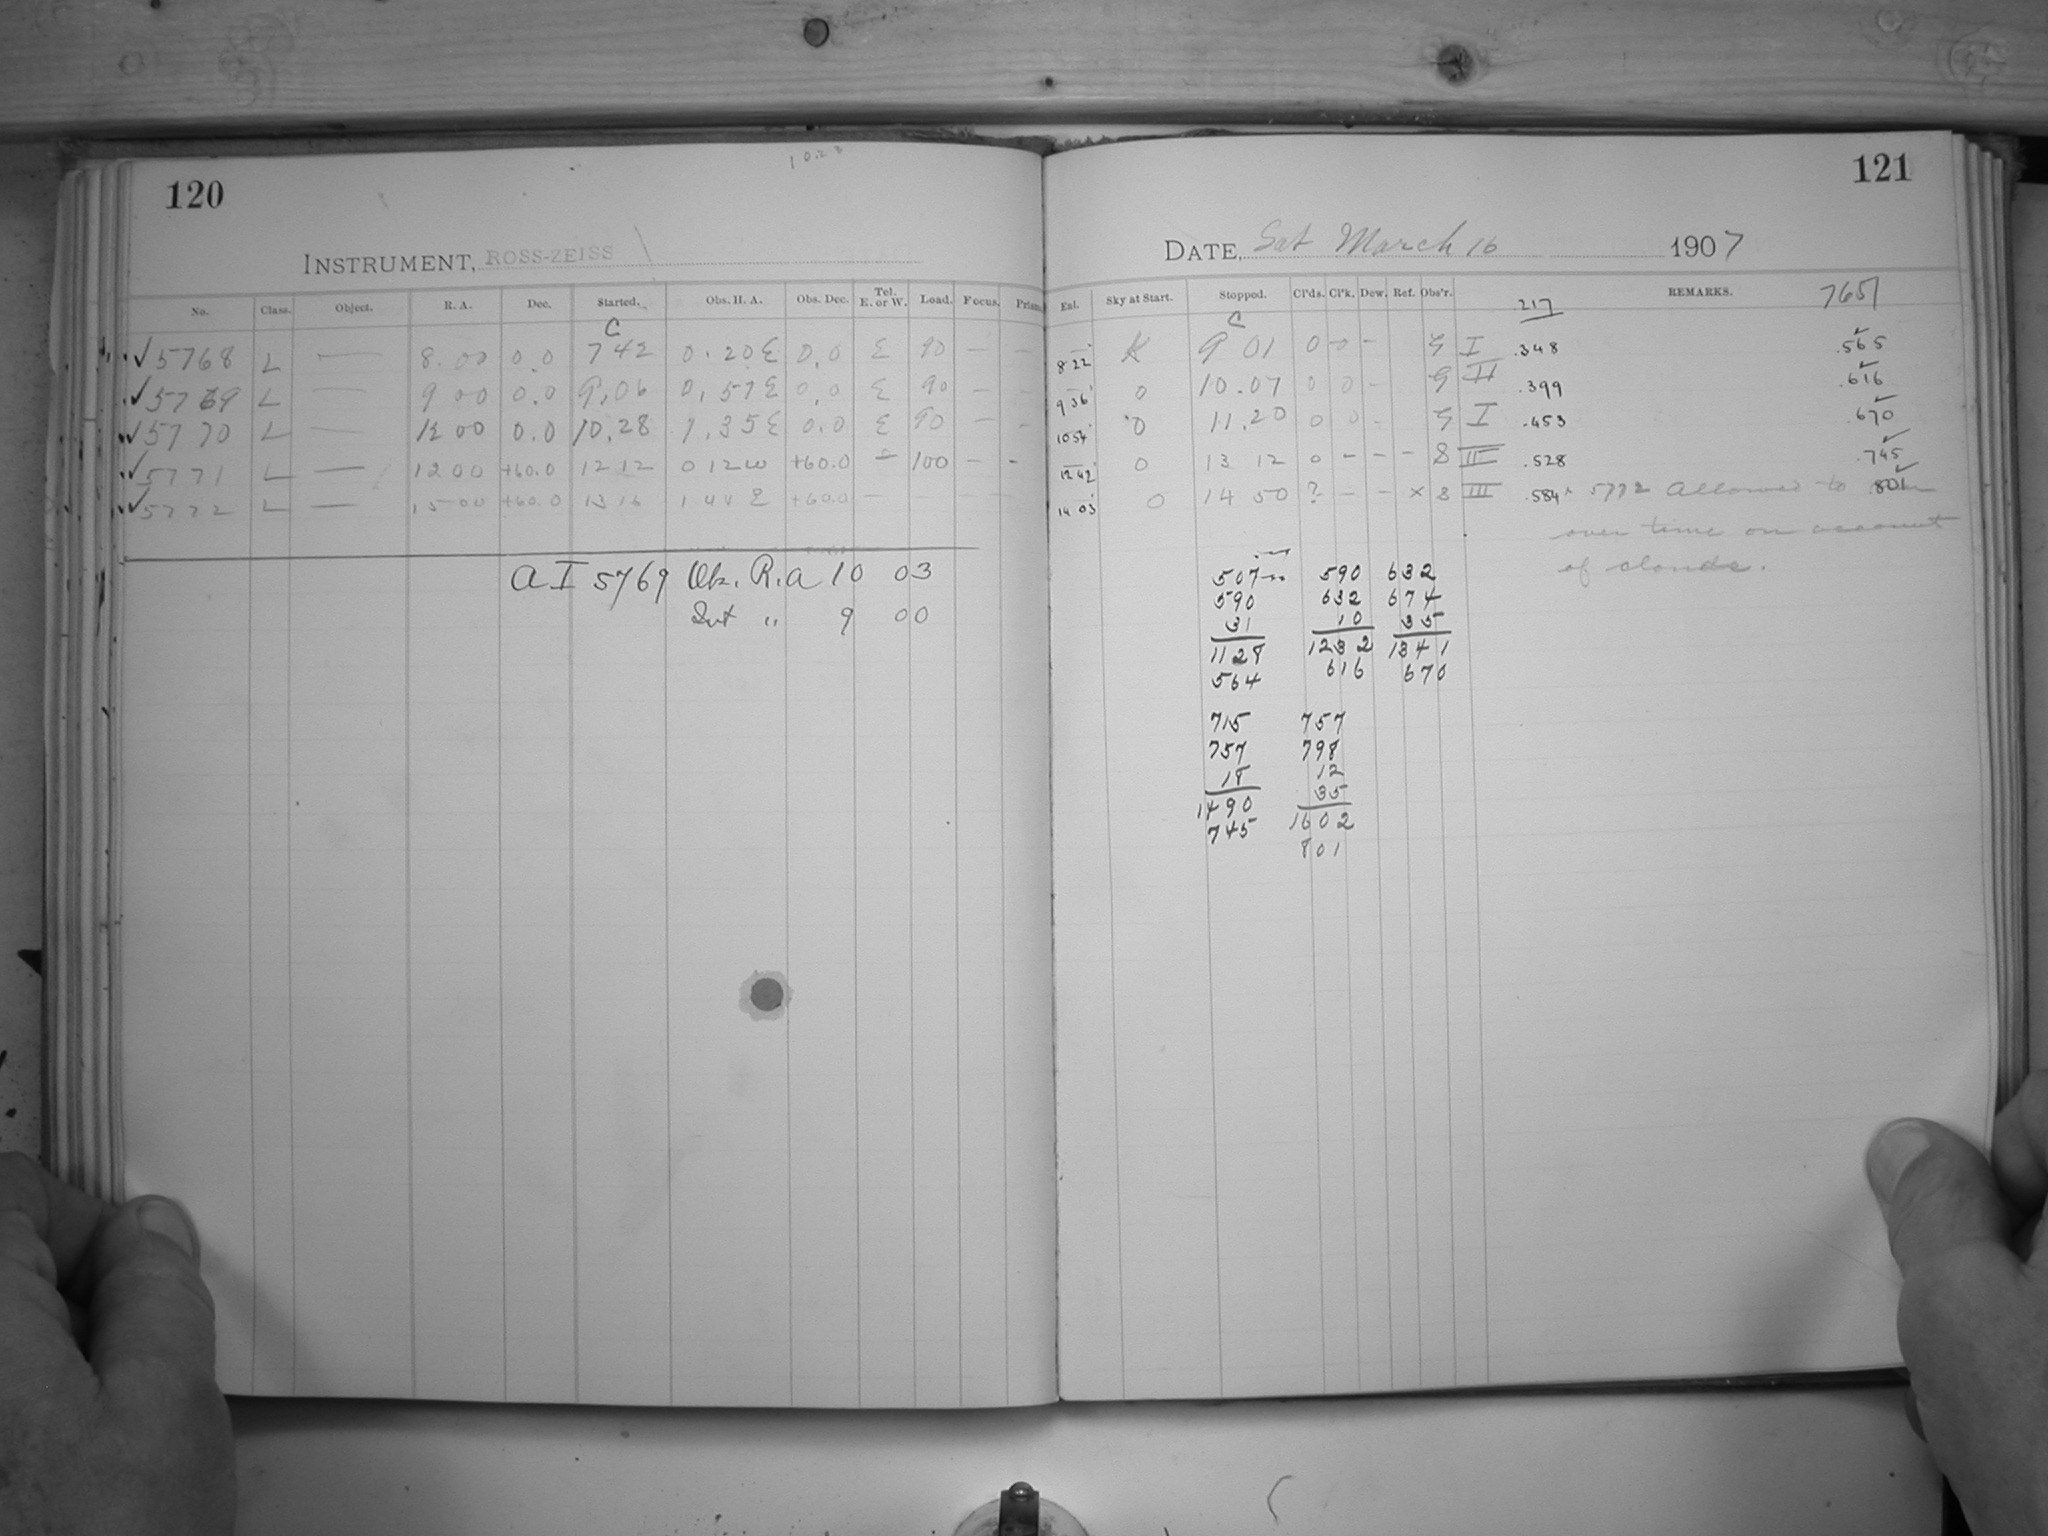 10.23
120
INSTRUMENT, ROSS-ZEISS
No. Class. Object. R. A. Dec. Started. Obs. H. A. Obs. Dec. Tel. E. or W. Load. Focus. Prism
C
✓5768 L — 8.00 0.0 7 42 0.20 E 0.0 E 90 — —
✓5769 L — 9 00 0.0 9.06 0.57 E 0.0 E 90 — —
✓5770 L — 12 00 0.0 10.28 1.35 E 0.0 E 90 — —
✓5771 L — 12 00 +60.0 12 12 0 12 W +60.0 100 — —
✓5772 L — 15 00 +60.0 13 16 1 44 E +60.0 —
A I 5769 Obs. R.A 10 03
" 9 00
121
DATE, Sat March 16 1907
Exl. Sky at Start. Stopped. Cl'ds. Cl'k. Dew. Ref. Obs'r. REMARKS. 7651
.217
C
8 22 9 01 0 - 0 - G I .348 .565
9 36 0 10.07 0 0 - G II .399 .616
10 54 0 11.20 0 0 - G I .453 .670
12 42 0 13 12 0 - - - S III .528 .745
14 03 0 14 50 ? - - × S III .584 × 5772 Allowed to run .801
over time on account
of clouds.
507 590 632
590 632 674
31 10 35
1128 1232 1341
564 616 670
715 757
757 798
18 12
35
1490 1602
745 801